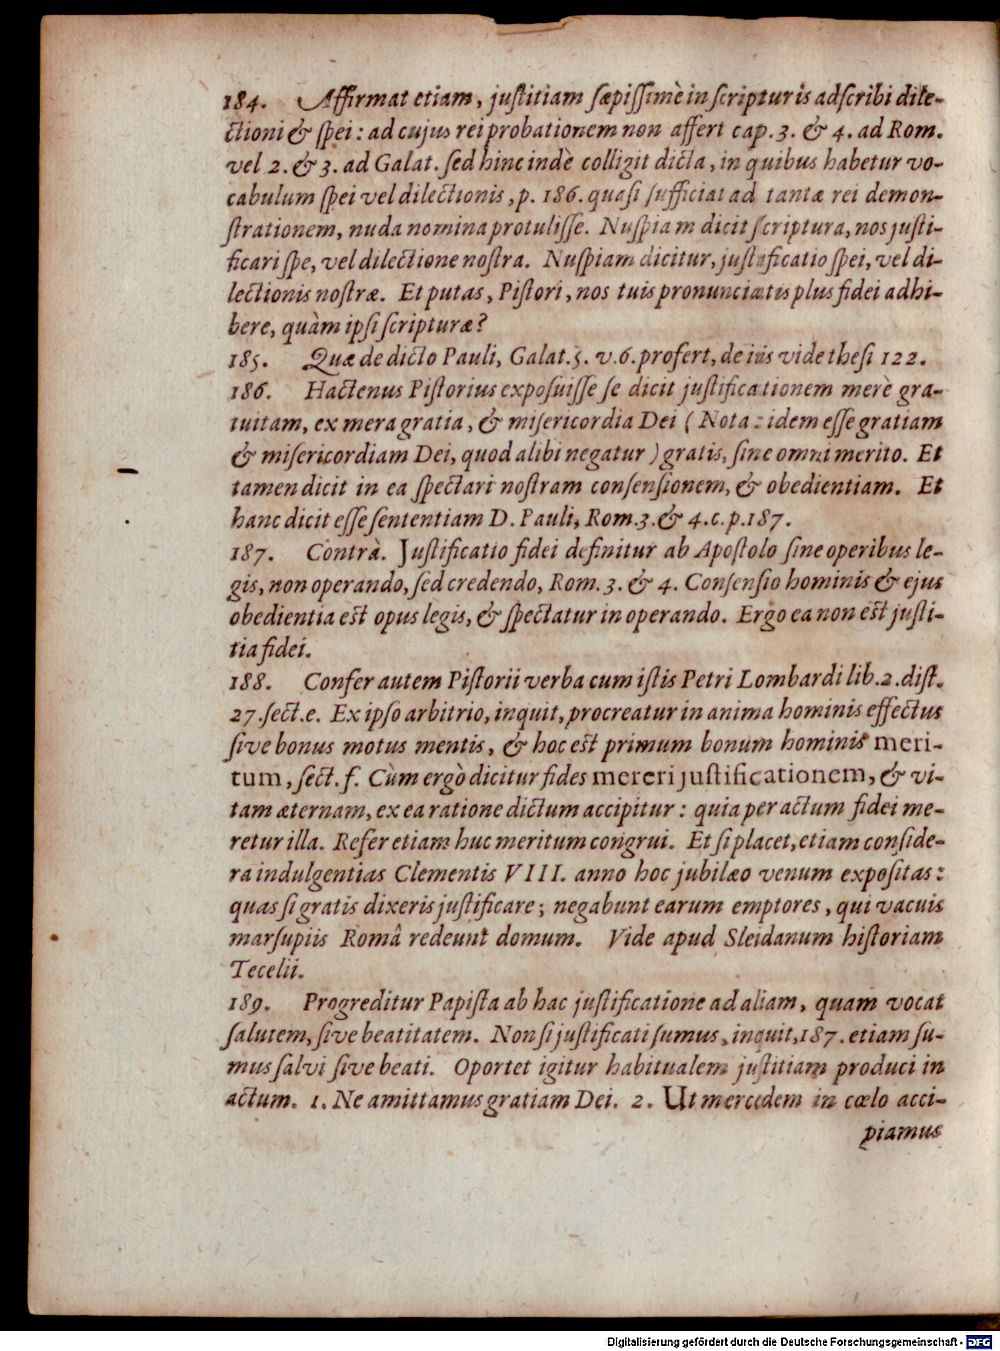 184. Affirmat etiam, juſtitiam ſæpiſſimè in ſcripturis adſcribi dile-
ctioni & ſpei: ad cujus rei probationem non affert cap. 3. & 4. ad Rom.
vel 2. & 3. ad Galat. ſed hinc indè colligit dicta, in quibus habetur vo-
cabulum ſpei vel dilectionis, p. 186. quaſi ſufficiat ad tantæ rei demon-
ſtrationem, nuda nomina protuliſſe. Nuſpiam dicit ſcriptura, nos juſti-
ficari ſpe, vel dilectione noſtra. Nuſpiam dicitur, juſtificatio ſpei, vel di-
lectionis noſtræ. Et putas, Piſtori, nos tuis pronunciatis plus fidei adhi-
bere, quàm ipſi ſcripturæ?
185. Quæ de dicto Pauli, Galat. 5. v. 6. profert, de iis vide theſi 122.
186. Hactenus Piſtorius expoſuiſſe ſe dicit juſtificationem merè gra-
tuitam, ex mera gratia, & miſericordia Dei (Nota: idem eſſe gratiam
& miſericordiam Dei, quod alibi negatur) gratis, ſine omni merito. Et
tamen dicit in ea ſpectari noſtram conſenſionem, & obedientiam. Et
hanc dicit eſſe ſententiam D. Pauli, Rom. 3. & 4. c. p. 187.
187. Contrà. Juſtificatio fidei definitur ab Apoſtolo ſine operibus le-
gis, non operando, ſed credendo, Rom. 3. & 4. Conſenſio hominis & ejus
obedientia eſt opus legis, & ſpectatur in operando. Ergo ea non eſt juſti-
tia fidei.
188. Confer autem Piſtorii verba cum iſtis Petri Lombardi lib. 2. diſt.
27. ſect. e. Ex ipſo arbitrio, inquit, procreatur in anima hominis effectus
ſive bonus motus mentis, & hoc eſt primum bonum hominis meri-
tum, ſect. f. Cùm ergò dicitur fides mereri juſtificationem, & vi-
tam æternam, ex ea ratione dictum accipitur: quia per actum fidei me-
retur illa. Refer etiam huc meritum congrui. Et ſi placet, etiam conſide-
ra indulgentias Clementis VIII. anno hoc jubilæo venum expoſitas:
quas ſi gratis dixeris juſtificare; negabunt earum emptores, qui vacuis
marſupiis Româ redeunt domum. Vide apud Sleidanum hiſtoriam
Tecelii.
189. Progreditur Papiſta ab hac juſtificatione ad aliam, quam vocat
ſalutem, ſive beatitatem. Non ſi juſtificati ſumus, inquit, 187. etiam ſu-
mus ſalvi ſive beati. Oportet igitur habitualem juſtitiam produci in
actum. 1. Ne amittamus gratiam Dei. 2. Ut mercedem in cœlo acci-
piamus
Digitalisierung gefördert durch die Deutsche Forschungsgemeinschaft - DFG